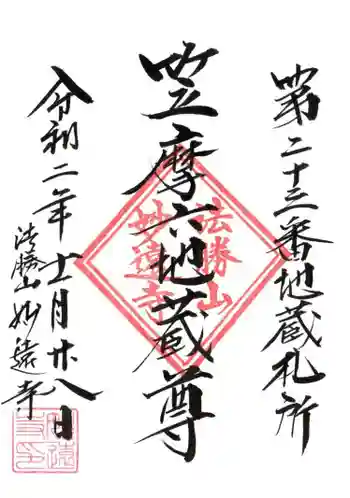 第二十三番地蔵札所
笠摩六地蔵尊
令和二年十一月廿八日
法勝山妙遠寺
法勝山
妙遠寺